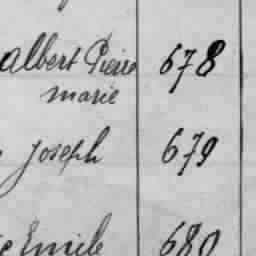 albert Pierre 678
marie
Joseph 679
Emile 680